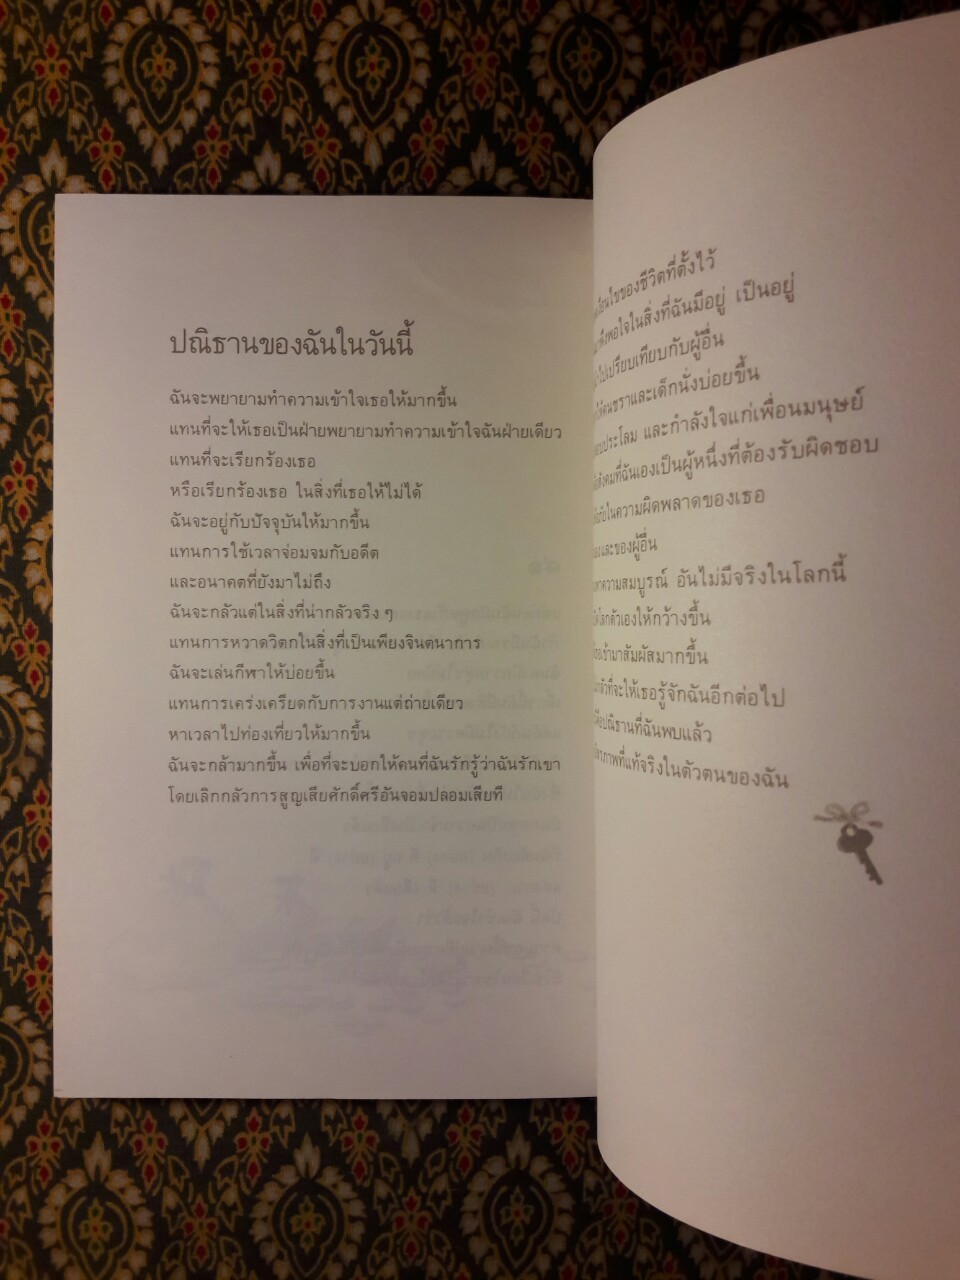 ปณิธานของฉันในวันนี้
ฉันจะพยายามทำความเข้าใจเธอให้มากขึ้น
แทนที่จะให้เธอเป็นฝ่ายพยายามทำความเข้าใจฉันฝ่ายเดียว
แทนที่จะเรียกร้องเธอ
หรือเรียกร้องเธอ ในสิ่งที่เธอให้ไม่ได้
ฉันจะอยู่กับปัจจุบันให้มากขึ้น
แทนการใช้เวลาจ่อมจมกับอดีต
และอนาคตที่ยังมาไม่ถึง
ฉันจะกลัวแต่ในสิ่งที่น่ากลัวจริง ๆ
แทนการหวาดวิตกในสิ่งที่เป็นเพียงจินตนาการ
ฉันจะเล่นกีฬาให้บ่อยขึ้น
แทนการเคร่งเครียดกับการงานแต่ถ่ายเดียว
หาเวลาไปท่องเที่ยวให้มากขึ้น
ฉันจะกล้ามากขึ้น เพื่อที่จะบอกให้คนที่ฉันรักรู้ว่าฉันรักเขา
โดยเลิกกลัวการสูญเสียศักดิ์ศรีอันจอมปลอมเสียที
ของชีวิตที่ตั้งไว้
พึงพอใจในสิ่งที่ฉันมีอยู่ เป็นอยู่
ไปเปรียบเทียบกับผู้อื่น
ให้คนชราและเด็กนั่งบ่อยขึ้น
ประโลม และกำลังใจแก่เพื่อนมนุษย์
สังคมที่ฉันเองเป็นผู้หนึ่งที่ต้องรับผิดชอบ
ในความผิดพลาดของเธอ
และของผู้อื่น
ความสมบูรณ์ อันไม่มีจริงในโลกนี้
ตัวเองให้กว้างขึ้น
เข้ามาสัมผัสมากขึ้น
ที่จะให้เธอรู้จักฉันอีกต่อไป
คือปณิธานที่ฉันพบแล้ว
ภาพที่แท้จริงในตัวตนของฉัน